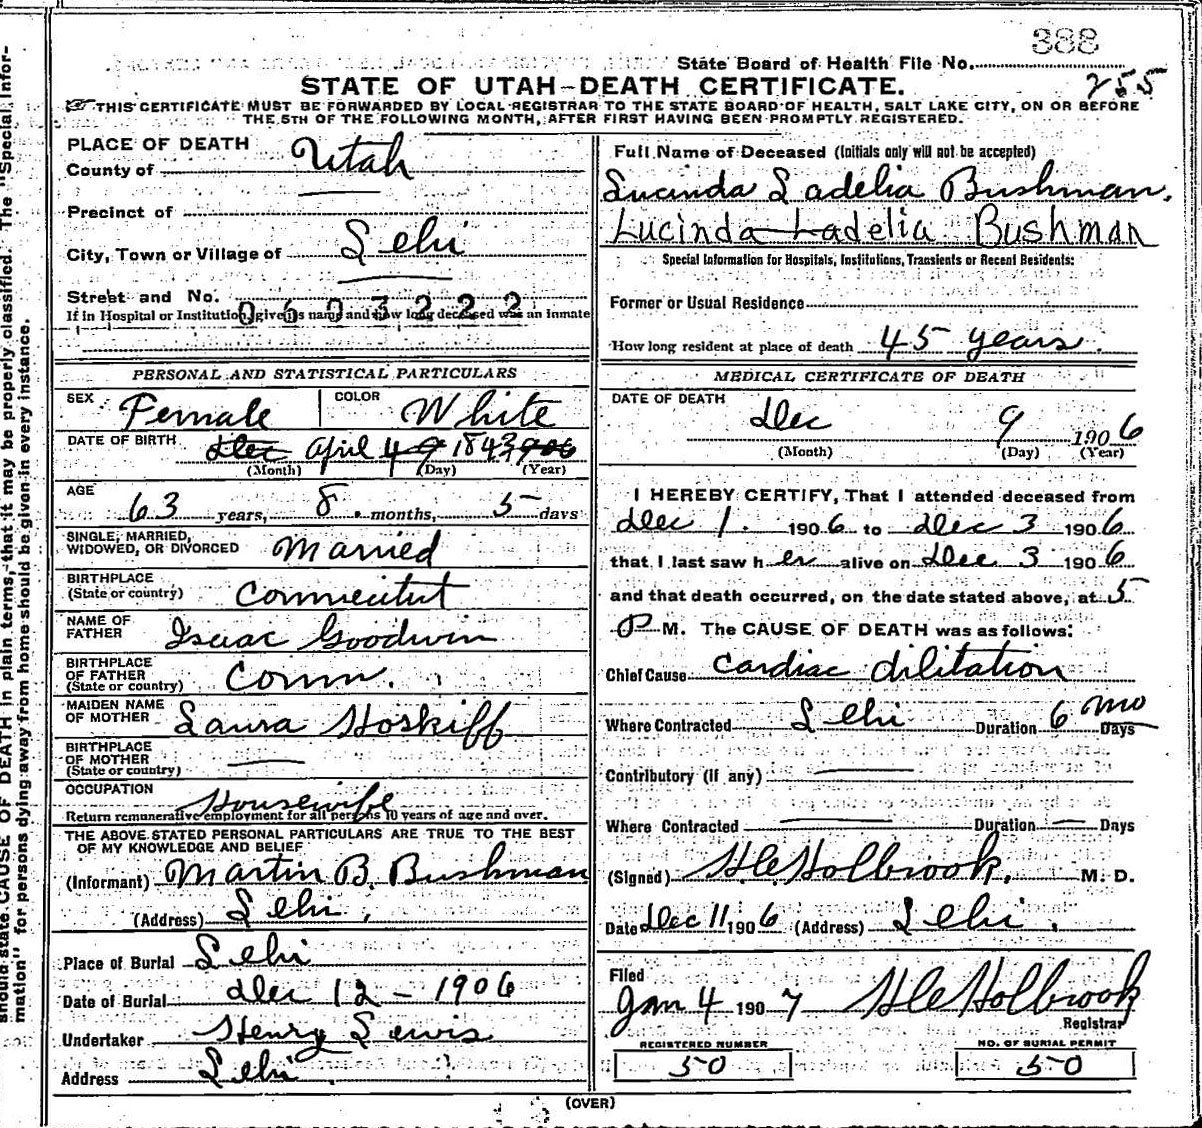 388
State Board of Health File No.
255
STATE OF UTAH—DEATH CERTIFICATE.
THIS CERTIFICATE MUST BE FORWARDED BY LOCAL REGISTRAR TO THE STATE BOARD OF HEALTH, SALT LAKE CITY, ON OR BEFORE
THE 5TH OF THE FOLLOWING MONTH, AFTER FIRST HAVING BEEN PROMPTLY REGISTERED.
PLACE OF DEATH
County of Utah
Precinct of
City, Town or Village of Lehi
Street and No.
0603222
If in Hospital or Institution, give its name and how long deceased was an inmate
Full Name of Deceased (Initials only will not be accepted)
Lucinda Ladelia Bushman.
Lucinda Ladelia Bushman
Special Information for Hospitals, Institutions, Transients or Recent Residents:
Former or Usual Residence
How long resident at place of death 45 years.
PERSONAL AND STATISTICAL PARTICULARS
SEX Female COLOR White
DATE OF BIRTH Dec April 4 9 1843 1906
(Month) (Day) (Year)
AGE
63 years, 8 months, 5 days
SINGLE, MARRIED,
WIDOWED, OR DIVORCED Married
BIRTHPLACE
(State or country) Connecitut
NAME OF
FATHER Isaac Goodwin
BIRTHPLACE
OF FATHER
(State or country) Conn.
MAIDEN NAME
OF MOTHER Laura Hoskiff
BIRTHPLACE
OF MOTHER
(State or country)
OCCUPATION
Housewife
Return remunerative employment for all persons 10 years of age and over.
THE ABOVE STATED PERSONAL PARTICULARS ARE TRUE TO THE BEST
OF MY KNOWLEDGE AND BELIEF
(Informant) Martin B. Bushman
(Address) Lehi.
Place of Burial Lehi
Date of Burial Dec 12 - 1906
Undertaker Henry Lewis
Address Lehi.
MEDICAL CERTIFICATE OF DEATH
DATE OF DEATH
Dec 9 1906
(Month) (Day) (Year)
I HEREBY CERTIFY, That I attended deceased from
Dec 1. 1906 to Dec 3 1906
that I last saw her alive on Dec 3 1906
and that death occurred, on the date stated above, at 5
P M. The CAUSE OF DEATH was as follows:
Chief Cause cardiac dilitation
Where Contracted Lehi Duration 6 mo Days
Contributory (if any)
Where Contracted Duration Days
(Signed) H.C. Holbrook, M. D.
Date Dec 11 1906 (Address) Lehi.
Filed
Jan 4 1907 H C Holbrook
Registrar
REGISTERED NUMBER
50
NO. OF BURIAL PERMIT
50
(OVER)
should state CAUSE OF DEATH in plain terms, that it may be properly classified. The "Special Infor-
mation" for persons dying away from home should be given in every instance.